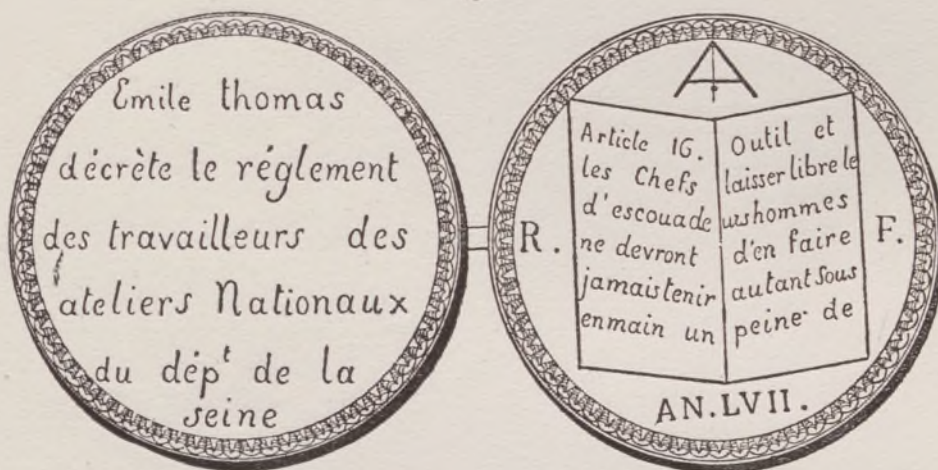 Emile thomas
décrète le réglement
des travailleurs des
ateliers Nationaux
du dépt de la
seine
R.
Article 16.
les Chefs
d'escouade
ne devront
jamais tenir
en main un
Outil et
laisser libre le
urs hommes
d'en faire
autant Sous
peine de
F.
AN.LVII.